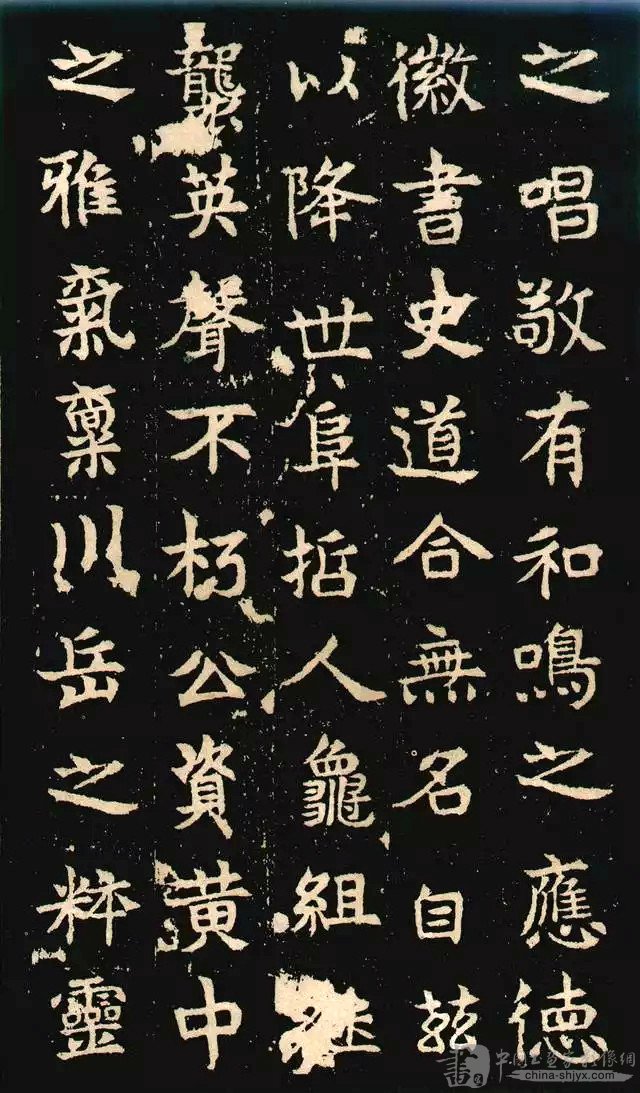 之唱敬有和鳴之應德
徽書史道合無名自兹
以降世阜哲人龜組
襲英聲不朽公資黄中
之雅氣稟川岳之粹靈
china-shjyx.com